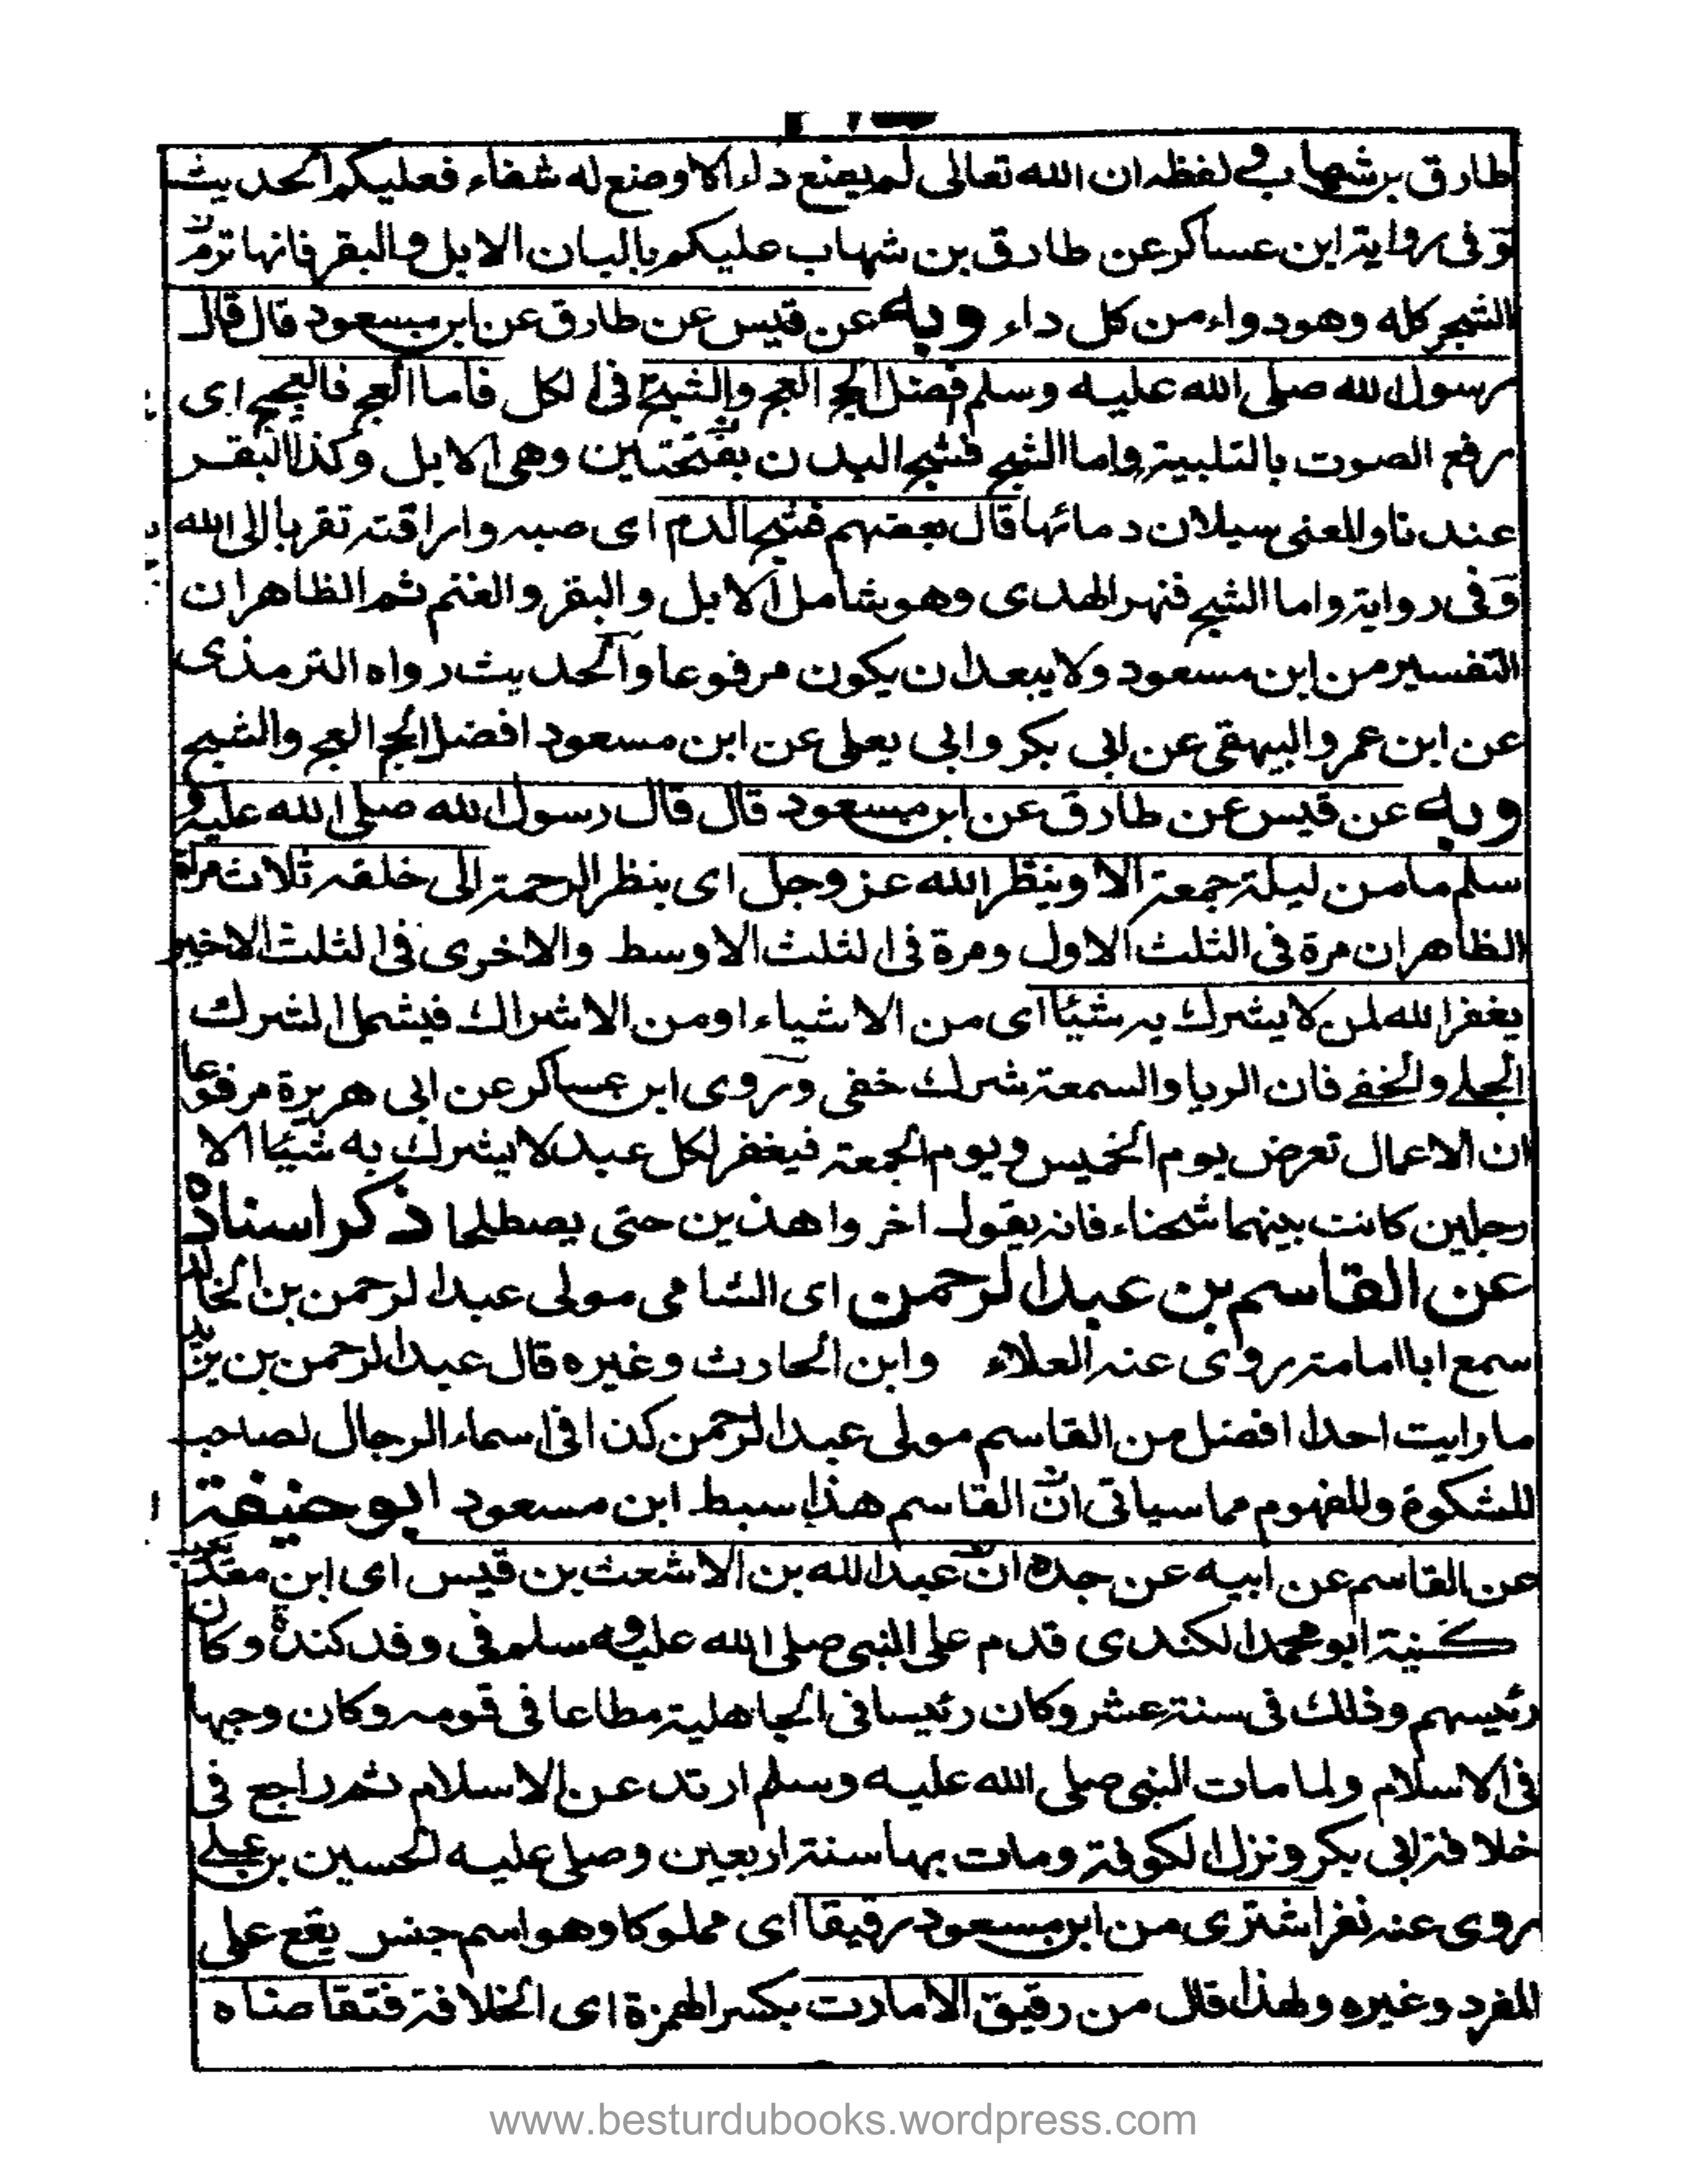 طارق بن شهاب في لفظه ان الله تعالى لم يضع داء الا وضع له شفاء فعليكم الحديث
وفى رواية ابن عساكر عن طارق بن شهاب عليكم بالبان الابل والبقر فانها ترم من
الشجر كله وهو دواء من كل داء وبه عن قيس عن طارق عن ابن مسعود قال قال
رسول الله صلى الله عليه وسلم فضل الحج العج والثج فى الكل فاما العج فالعجيج اى
رفع الصوت بالتلبية واما الثج فثج البدن بفتحتين وهى الابل وكذا البقر
عندنا والمعنى سيلان دمائها قال بعضهم فثج الدم اى صبه واراقته تقربا الى الله
وفى رواية واما الثج فنهر الهدى وهو شامل الابل والبقر والغنم ثم الظاهر ان
التفسير من ابن مسعود ولا يبعد ان يكون مرفوعا والحديث رواه الترمذى
عن ابن عمر والبيهقى عن ابى بكر وابى يعلى عن ابن مسعود افضل الحج العج والثج
وبه عن قيس عن طارق عن ابن مسعود قال قال رسول الله صلى الله عليه و
سلم ما من ليلة جمعة الا وينظر الله عز وجل اى ينظر الرحمة الى خلقه ثلاث مرات
الظاهر ان مرة فى الثلث الاول ومرة فى الثلث الاوسط والاخرى فى الثلث الاخير
يغفر الله لمن لا يشرك به شيئا اى من الاشياء او من الاشراك فيشمل الشرك
الجلي والخفي فان الريا والسمعة شرك خفى وروى ابن عساكر عن ابى هريرة مرفوعا
ان الاعمال تعرض يوم الخميس ويوم الجمعة فيغفر لكل عبد لا يشرك به شيئا الا
رجلين كانت بينهما شحناء فانه يقول اخروا هذين حتى يصطلحا ذكر اسناده
عن القاسم بن عبد الرحمن اى الشامى مولى عبد الرحمن بن الخالد
سمع ابا امامة روى عنه العلاء وابن الحارث وغيره قال عبد الرحمن بن يزيد
ما رايت احدا افضل من القاسم مولى عبد الرحمن كذا فى اسماء الرجال لصاحب
المشكوة والمفهوم مما سياتى ان القاسم هذا سبط ابن مسعود ابو حنيفة
عن القاسم عن ابيه عن جده ان عبد الله بن الاشعث بن قيس اى ابن معديكرب
كنية ابو محمد الكندى قدم على النبى صلى الله عليه وسلم فى وفد كندة وكان
رئيسهم وذلك فى سنة عشر وكان رئيسا فى الجاهلية مطاعا فى قومه وكان وجيها
فى الاسلام ولما مات النبى صلى الله عليه وسلم ارتد عن الاسلام ثم راجع فى
خلافة ابى بكر ونزل الكوفة ومات بها سنة اربعين وصلى عليه الحسين بن علي
روى عنه نفر اشترى من ابن مسعود رقيقا اى مملوكا وهو اسم جنس يقع على
المفرد وغيره ولهذا قال من رقيق الامارت بكسر الهمزة اى الخلافة فتقاضاه
www.besturdubooks.wordpress.com